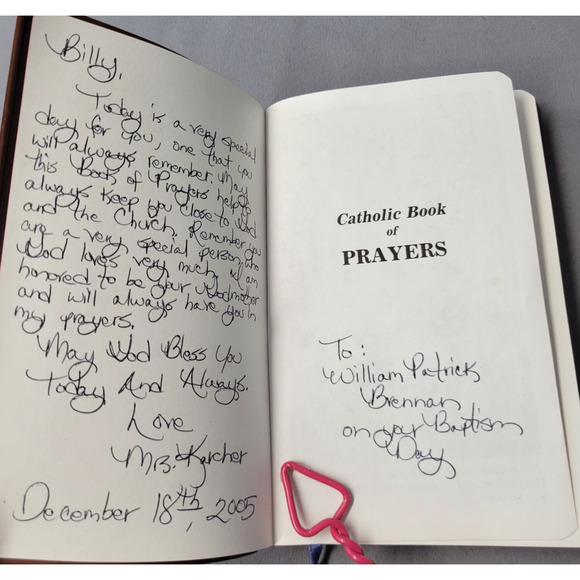 Billy,
Today is a very special
day for you, one that you
will always remember. May
this Book of Prayers help to
always keep you close to God
and the Church. Remember you
are a very special person who
God loves very much. I am
honored to be your Godmother
and will always have you in
my prayers.
May God Bless You
Today And Always.
Love
Mrs. Karcher
December 18th, 2005
Catholic Book
of
PRAYERS
To:
William Patrick
Brennan
on your Baptism
Day